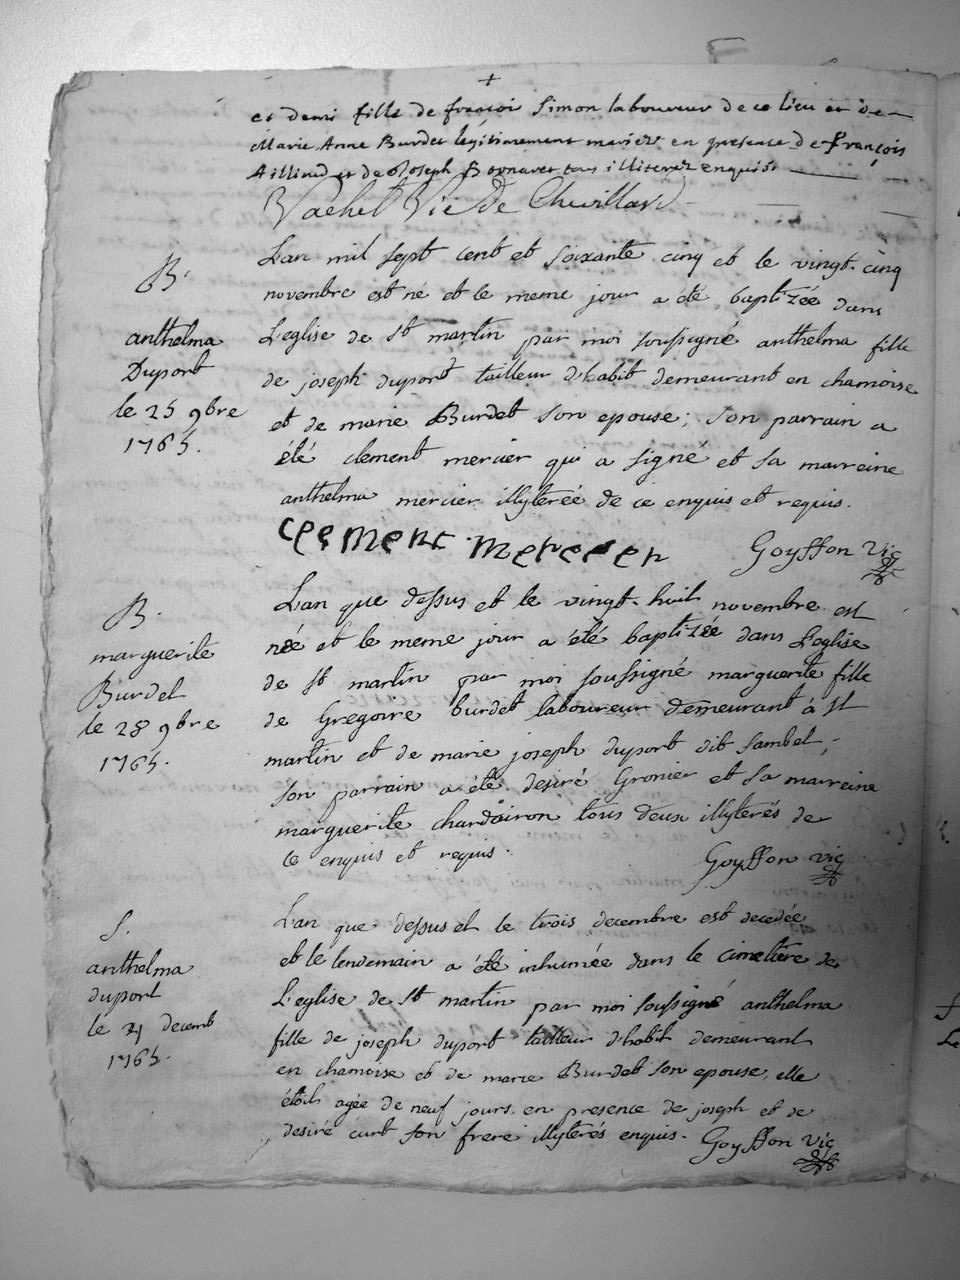 +
et demi fille de françoi Simon laboureur de ce lieu et de
Marie Anne Burdet légitimement mariéz en présence de François
Aillind et de Joseph Bornavet tous illiterez enquist
Vachet Vic De Chevillard
B.
anthelma
Dupont
le 25 9bre
1765.
L'an mil sept cent et soixante cinq et le vingt-cinq
novembre est né et le meme jour a été baptizée dans
L'eglise de St martin par moi soussigné anthelma fille
de joseph dupont tailleur d'habit demeurant en chamoise
et de marie Burdet son epouse; son parrain a
été clement mercier qui a signé et sa marreine
anthelma mercier illyterée de ce enquis et requis.
Clement merceer
Goyffon Vic
B.
marguerite
Burdet
le 28 9bre
1765.
L'an que dessus et le vingt-huit novembre est
née et le meme jour a été baptizée dans L'eglise
de St martin par moi soussigné marguerite fille
de Gregoire burdet laboureur demeurant à St
martin et de marie joseph dupont dit Sambet,
son parrain a été desiré Gronier et sa marreine
marguerite chardoiron tous deux illyterés de
ce enquis et requis.
Goyffon vic
S.
anthelma
dupont
le 4 decemb
1765.
L'an que dessus et le trois decembre est decedée
et le lendemain a été inhumée dans le cimetière de
L'eglise de St martin par moi soussigné anthelma
fille de joseph dupont tailleur d'habit demeurant
en chamoise et de marie Burdet son epouse, elle
étoit agée de neuf jours en presence de joseph et de
desiré curt son frere illyterés enquis.
Goyffon vic